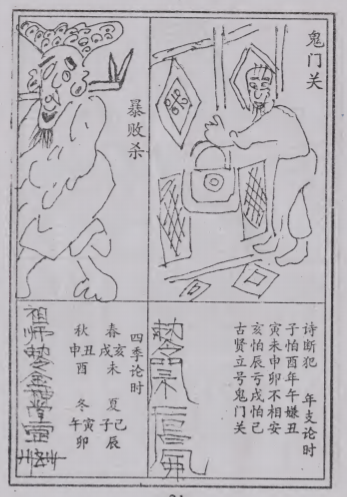 鬼门关
暴败杀
诗断犯 年支论时
子怕酉年午嫌丑
寅未申卯不相安
亥怕辰亏戌怕已
古贤立号鬼门关
四季论时
春亥戌未 夏己子辰
秋丑申酉 冬寅午卯
祖师